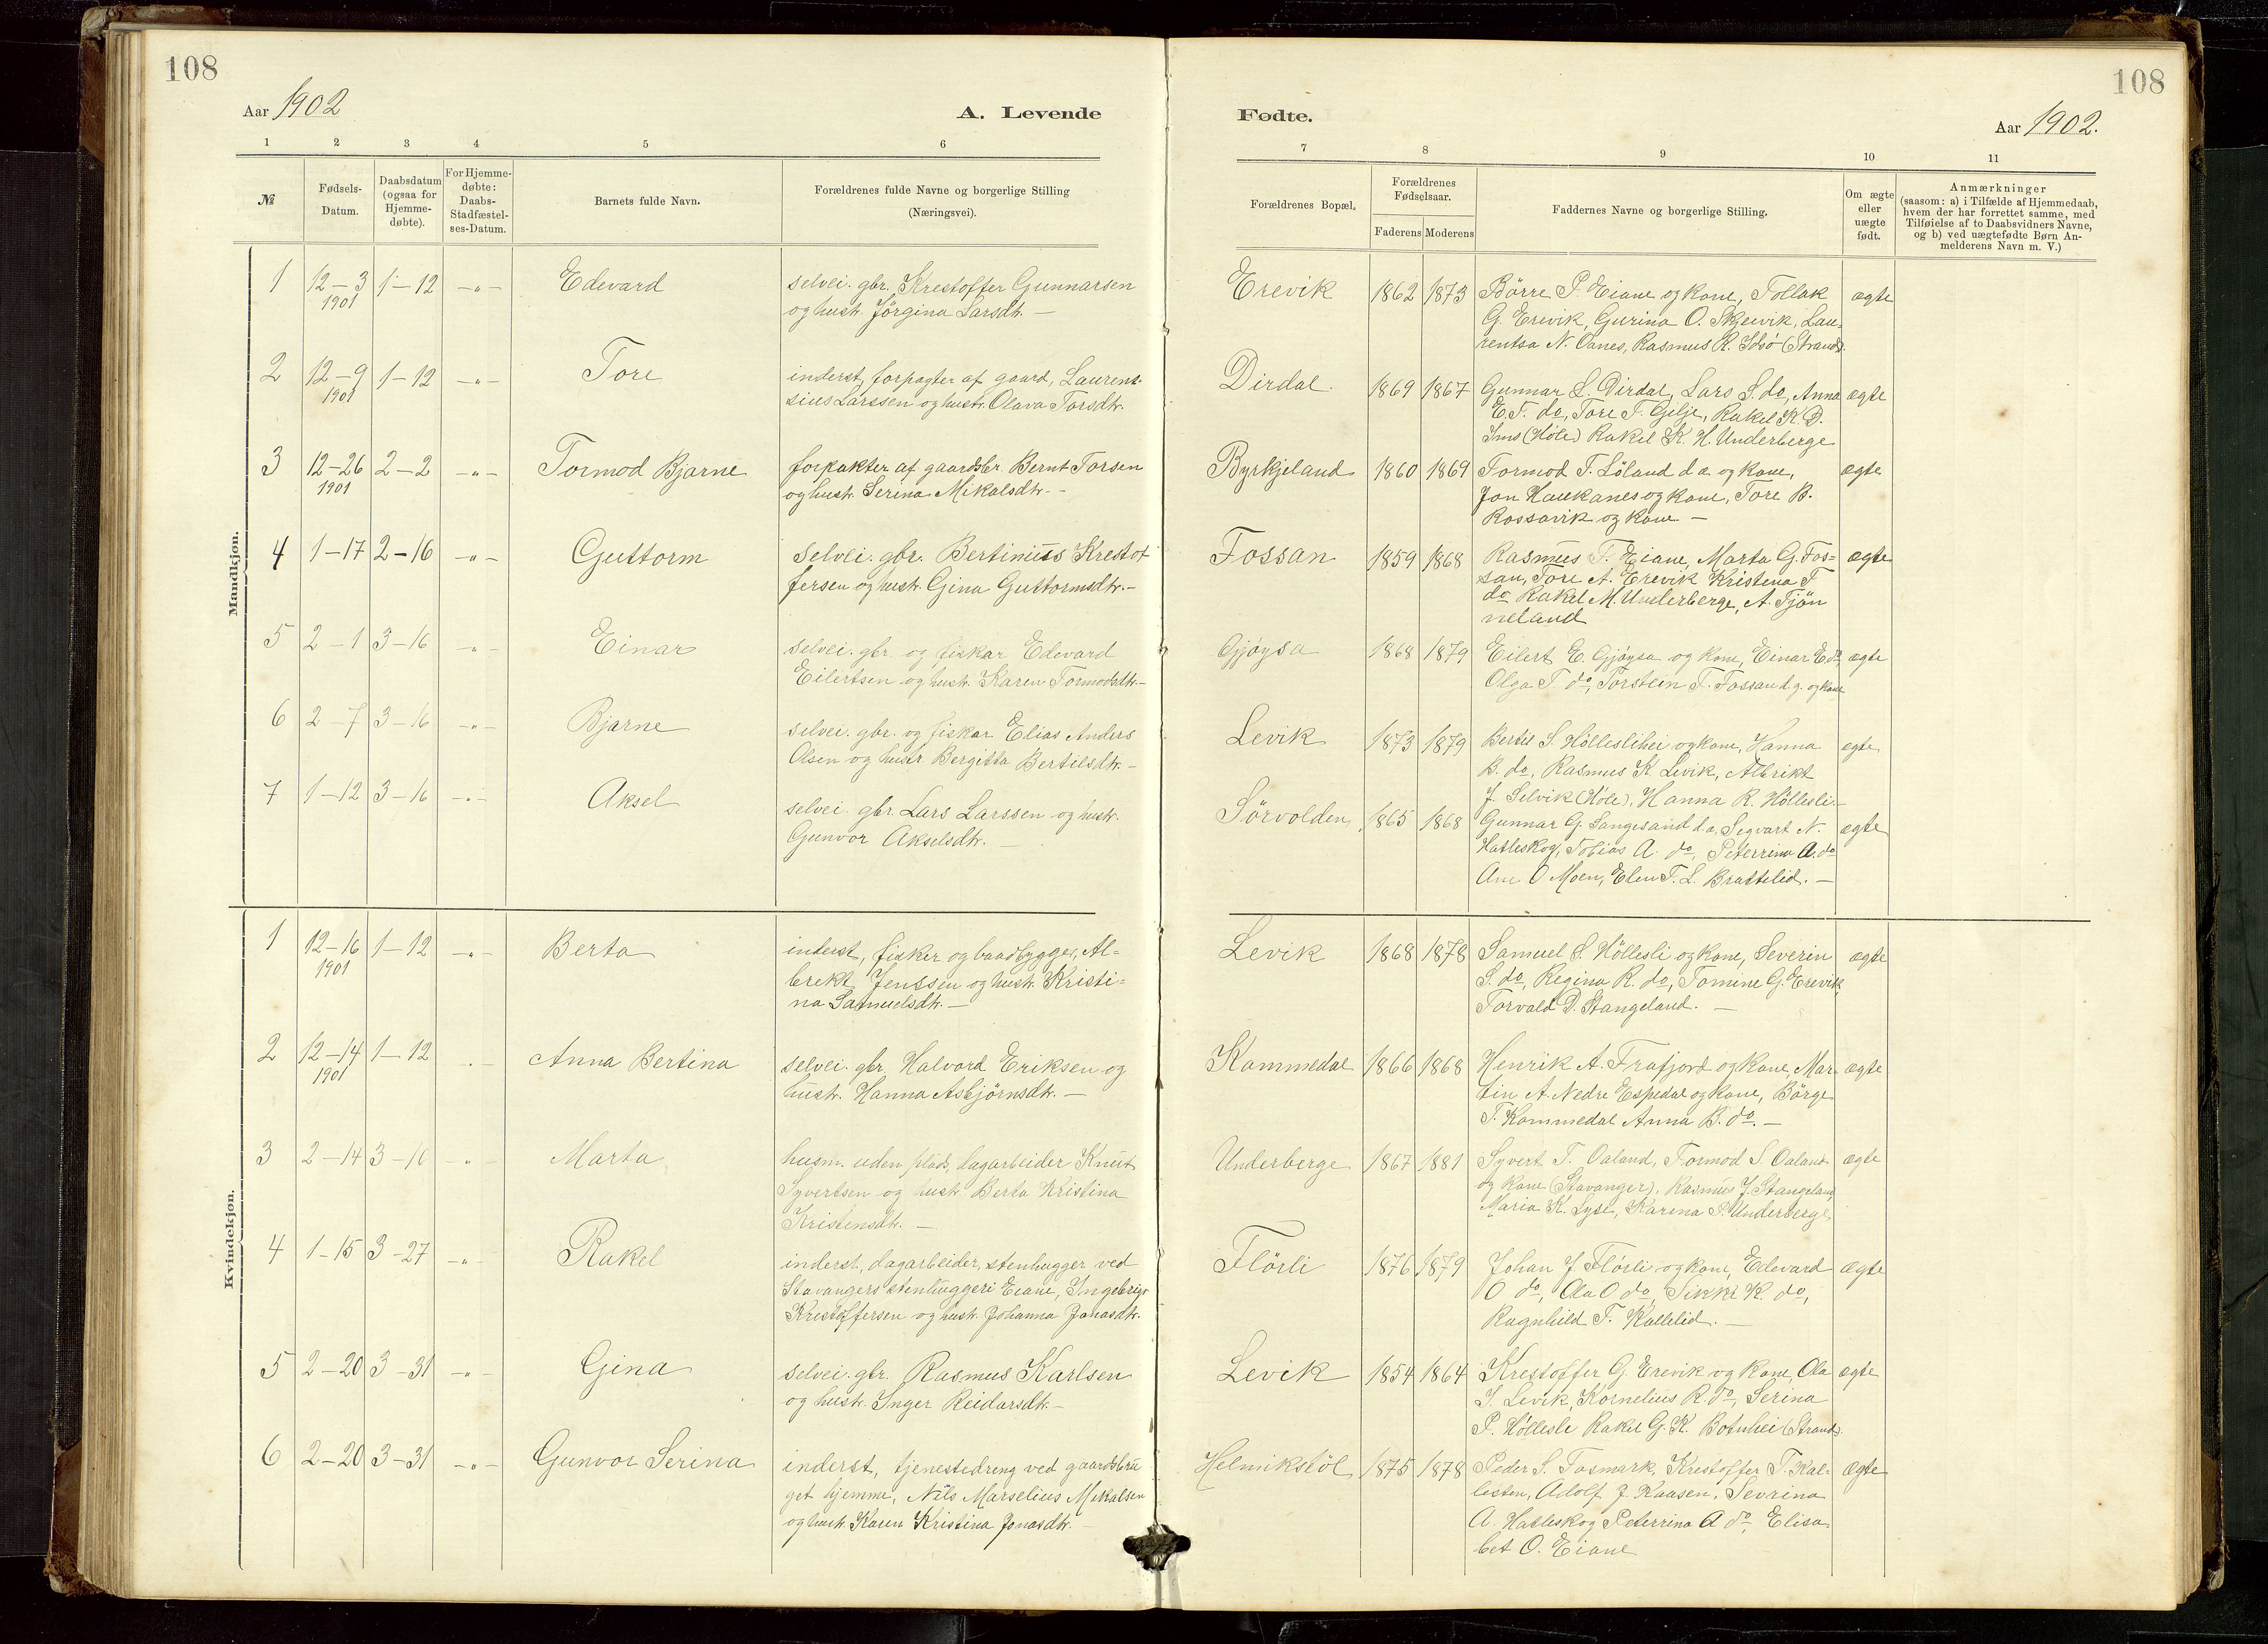 108
108
Aar 1902
A. Levende
Fødte.
Aar 1902.
1 2 3 4 5 6
7 8 9 10 11
№
Fødsels-Datum.
Daabsdatum (ogsaa for Hjemmedøbte).
For Hjemmedøbte: Daabs-Stadfæstelses-Datum.
Barnets fulde Navn.
Forældrenes fulde Navne og borgerlige Stilling
(Næringsvei).
Forældrenes Bopæl.
Forældrenes Fødselsaar.
Faderens Moderens
Faddernes Navne og borgerlige Stilling.
Om ægte eller uægte født.
Anmærkninger
(saasom: a) i Tilfælde af Hjemmedaab,
hvem der har forrettet samme, med
Tilføielse af to Daabsvidners Navne,
og b) ved uægtefødte Børn Anmelderens Navn m. V.)
Mandkjøn.
1 12-3 1901 1-12 -"- Edevard
selvei. gbr. Krestoffer Gunnarsen
og hustr. Jørgina Larsdtr. -
Erevik 1862 1873
Børre P. Eiane og kone, Tollak
G. Erevik, Gurina O. Skjervik, Lau-
rentsa N. Oanes, Rasmus R. Idsø (Strand).
ægte
2 12-9 1901 1-12 -"- Tore
inderst, forpagter af gaard, Laurent-
sius Larssen og hustr. Olava Torsdtr.
Dirdal. 1869 1867
Gunnar L. Dirdal, Lars S. do, Anna
E.T. do, Tore T. Gilje, Rakel K.D.
Ims (Høle) Rakel K. H. Underberge
ægte
3 12-26 1901 2-2 -"- Tormod Bjarne
forpakter af gaardsbr. Bernt Torsen
og hustr. Serina Mikalsdtr. -
Byrkjeland 1860 1869
Tormod T. Løland d.æ. og kone,
Jon Haukanes og kone, Tore B.
Rossavik og kone -
ægte
4 1-17 2-16 -"- Guttorm
selvei. gbr. Bertinius Krestof
fersen og hustr. Gina Guttormsdtr. -
Fossan 1859 1868
Rasmus T. Eiane, Marta G. Fos-
san, Tore A. Erevik Kristina T
do Rakel M. Underberge, A. Tjøn
neland
ægte
5 2-1 3-16 -"- Einar
selvei. gbr. og fiskar Edevard
Eilertsen og hustr. Karen Tormodsdtr. -
Gjøysa 1868 1879
Eilert E. Gjøysa og kone, Einar E do,
Olga T. do, Torstein T. Fossan d.y. og kone
ægte
6 2-7 3-16 -"- Bjarne
selvei. gbr. og fiskar Elias Anders
Olsen og hustr Bergitta Bertilsdtr. -
Levik 1873 1879
Bertil S. Hølleslihei og kone, Hanna
B. do, Rasmus K Levik, Albrikt
J. Selvik (Høle), Hanna R. Høllesli. -
ægte
7 1-12 3-16 -"- Aksel
selvei. gbr Lars Larssen og hustr.
Gunvor Akselsdtr. -
Sørvolden 1865 1868
Gunnar G. Sangesand d.æ, Segvart N.
Hatleskog, Tobias A. do, Peterrina A. do
Ane O Moen, Elen T. L. Brattelid. -
ægte
Kvindekjøn.
1 12-16 1901 1-12 -"- Berta
inderst, fisker og baadbygger, Al-
brekt Jenssen og hustr. Kristi-
na Samuelsdtr. -
Levik 1868 1878
Samuel S. Høllesli og kone, Severin
S. do, Regina R. do, Tomine G. Erevik,
Torvald D. Stangeland. -
ægte
2 12-14 1901 1-12 Anna Bertina
selvei. gbr. Halvard Eriksen og
hustr. Hanna Asbjørnsdtr. -
Kommedal 1866 1868
Henrik A. Frafjord og kone, Mar-
tin A. Nedre Espedal og kone, Børge
T. Kommedal Anna B. do. -
ægte
3 2-14 3-16 -"- Marta
husm. uden plads, dagarbeider Knut
Syvertsen og hustr. Berta Kristina
Kristensdtr. -
Underberge 1867 1881
Syvert T. Oaland, Tormod S Oaland
og kone (Stavanger), Rasmus J. Stangeland
Maria K. Lyse, Karina P. Underberge
ægte
4 1-15 3-27 -"- Rakel
inderst, dagarbeider, stenhugger ved
Stavangers stenhuggeri Eiane, Ingebrigt
Krestoffersen og hustr. Johanna Jonasdtr.
Flörli 1876 1879
Johan J Flørli og kone, Edevard
O do, Ola O do, Sikke K. do,
Ragnhild T. Kallelid. -
ægte
5 2-20 3-31 -"- Gina
selvei. gbr. Rasmus Karlsen
og hustr. Inger Reidarsdtr. -
Levik 1854 1864
Krestoffer G. Erevik og kone, Ola
J. Levik, Kornelius R. do, Serina
P. Høllesli Rakel G. K. Botnhei (Strand).
ægte
6 2-20 3-31 -"- Gunvor Serina
inderst, tjenestedreng ved gaardsbru
get hjemme, Nils Marselius Mikalsen
og hustr. Karen Kristina Jonasdtr. -
Helmikstøl 1875 1878
Peder S. Fosmark, Krestoffer T. Kal-
lesten, Adolf J. Kaasen, Sevrina
A. Hatleskog Peterrina A do, Elisa-
bet O. Eiane
ægte